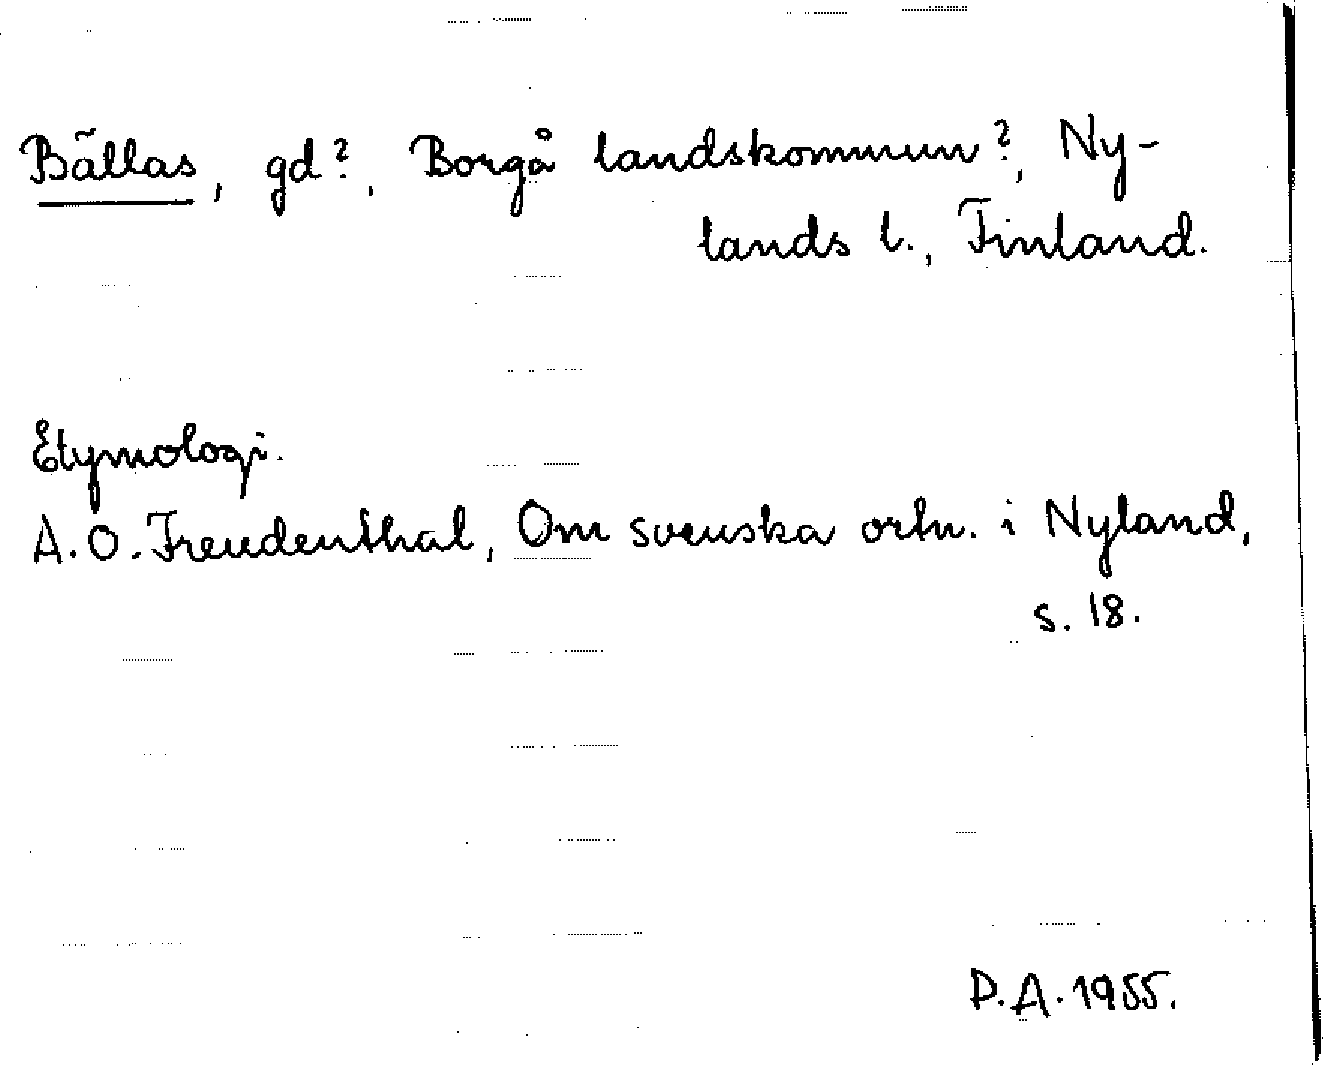 Bällas, gd?, Borgå landskommun?, Ny-
lands l., Finland.
Etymologi.
A.O. Freudenthal, Om svenska ortn. i Nyland,
s. 18.
P.A. 1955.